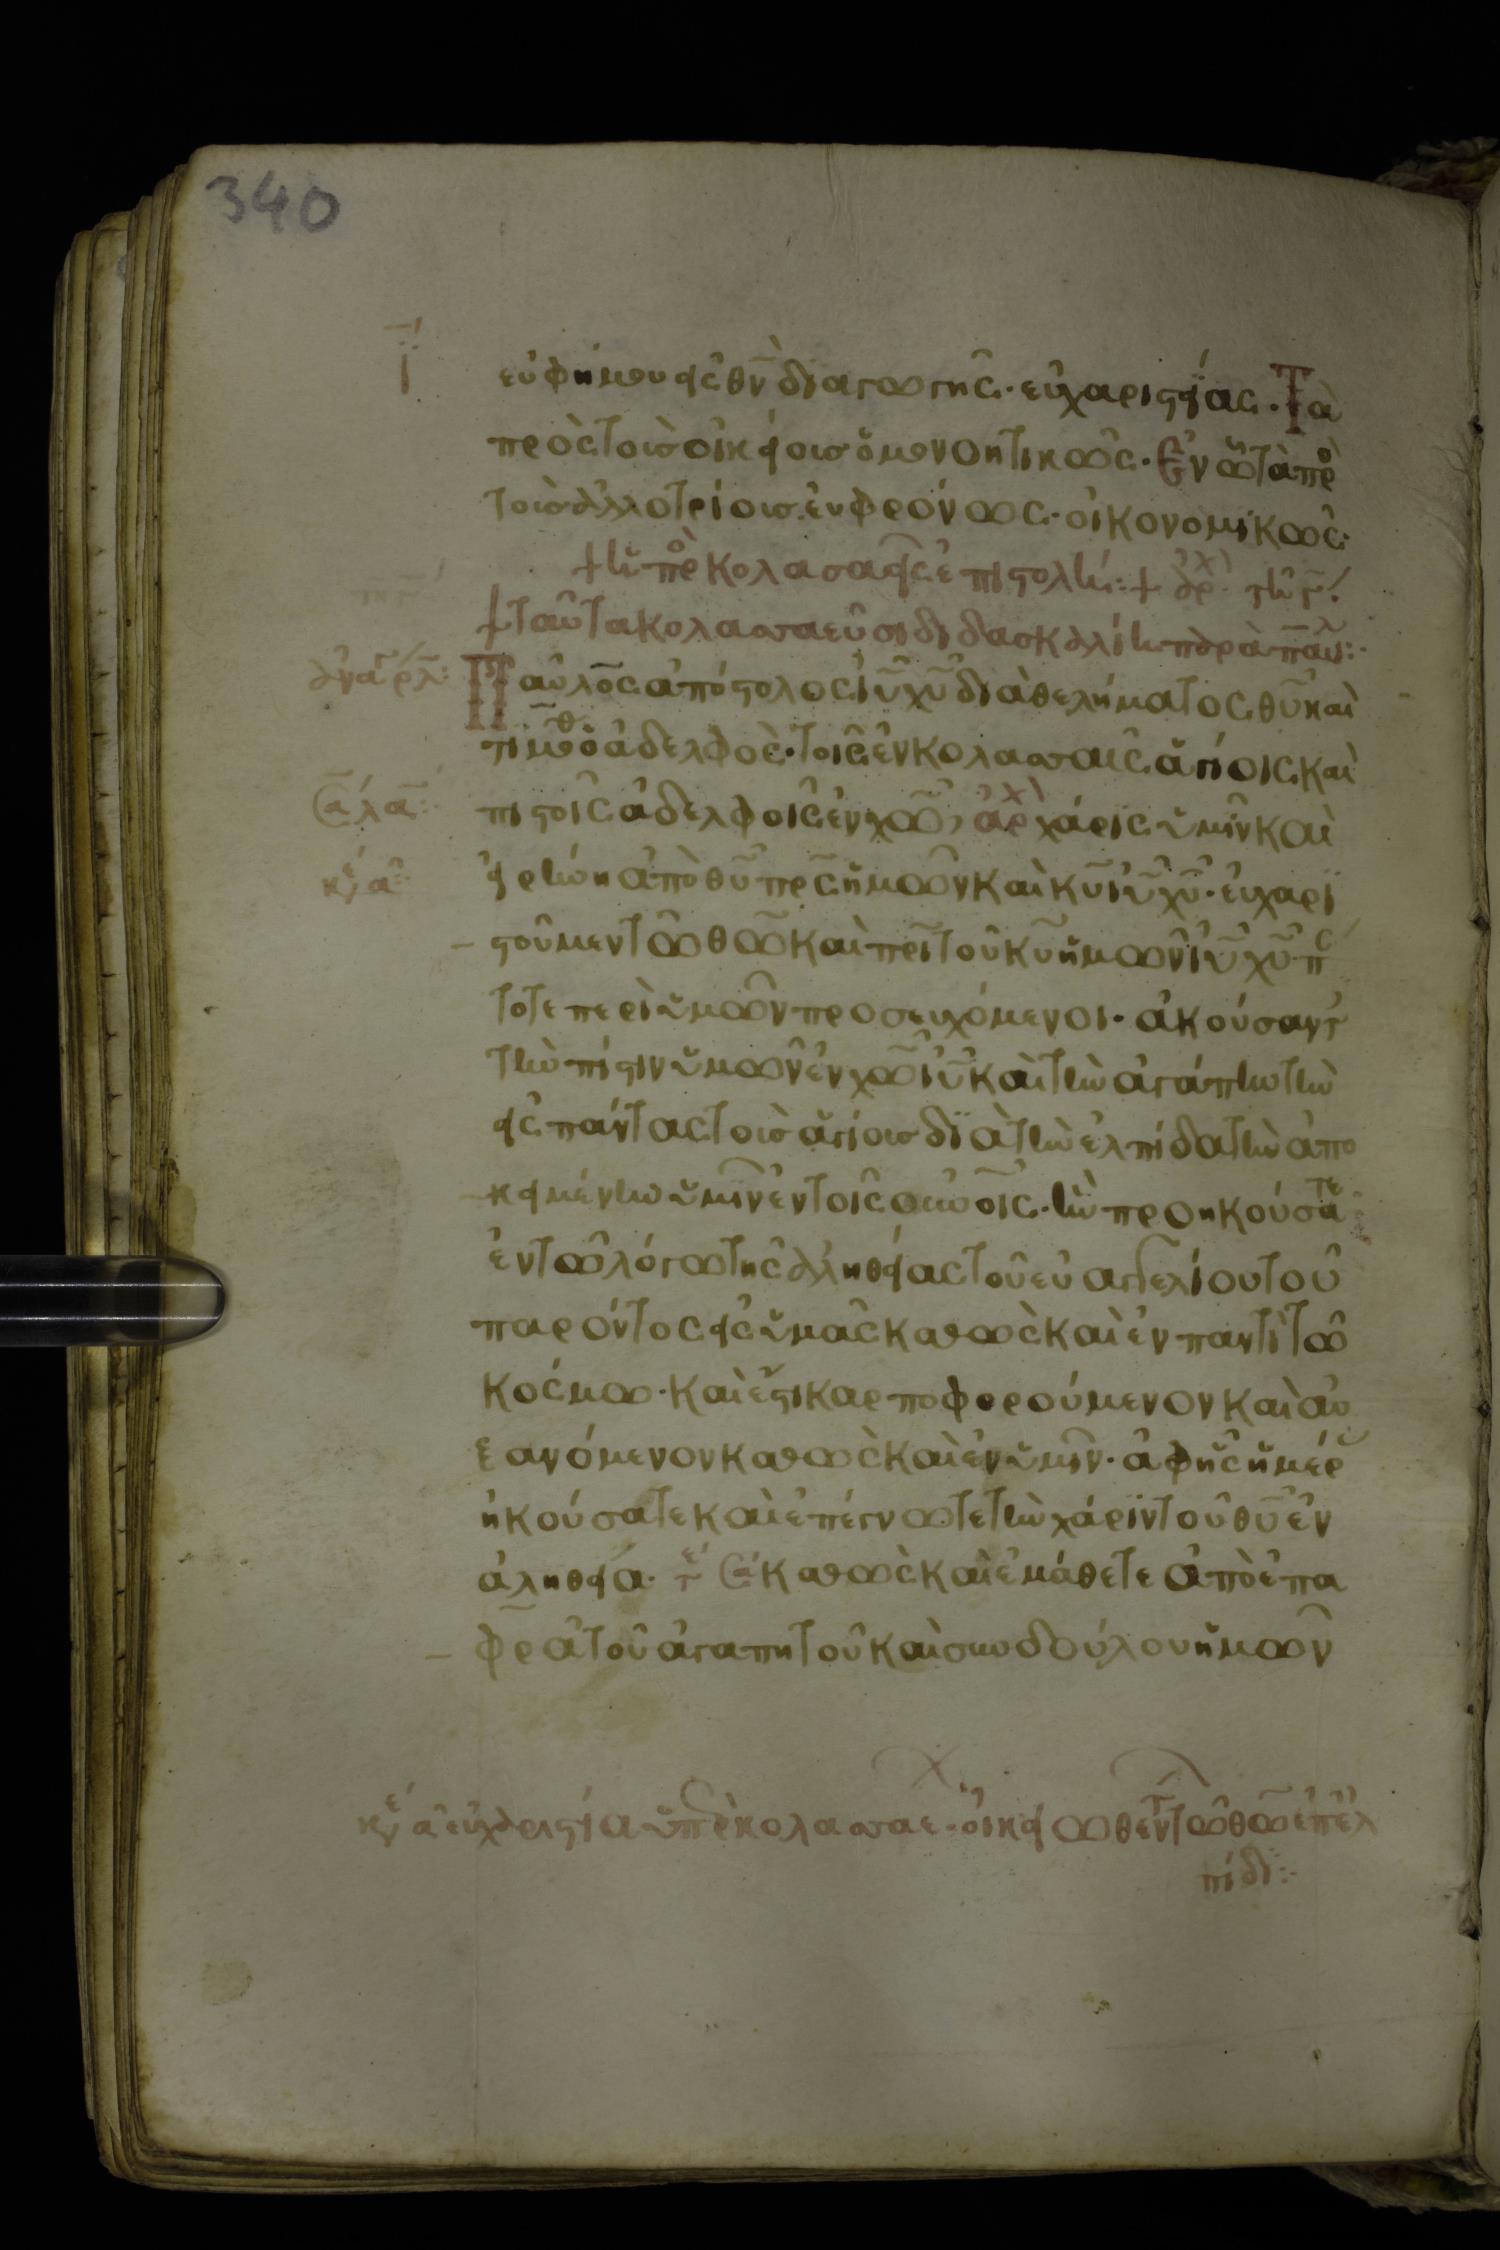 340
ι̅
εὐφήμου εἰς θν̅ διαγωγῆς· εὐχαριστίας. Τὰ
πρὸς τοὺς οἰκείους ὁμονοητικῶς. Ἐν ᾧ τὰ πρὸ
τοὺς ἀλλοτρίους ἐμφρόνως· οἰκονομικῶς·
+ ἡ πρὸ κολασαεῖς ἐπιστολή :+
+ ταῦτα κολασσαεῦσι διδασκαλίην παρὰ παυλ :·
Παῦλος ἀπόστολος ιυ̅ χυ̅ διὰ θελήματος θυ̅ καὶ
τιμόθ ὁ ἀδελφός· τοῖς ἐν κολασσαῖς ἁγίοις καὶ
πιστοῖς ἀδελφοῖς ἐν χω̅, ἀρχ χάρις ὑμῖν καὶ
εἰρήνη ἀπὸ θυ̅ πρς̅ ἡμῶν καὶ κυ̅ ιυ̅ χυ̅· εὐχαρι
στοῦμεν τῶ θω̅ καὶ πρι̅ τοῦ κυ̅ ἡμῶν ιυ̅ χυ̅· π
τοτε περὶ ὑμῶν προσευχόμενοι· ἀκούσαντ
τὴν πίστιν ὑμῶν ἐν χω̅ ιυ̅ καὶ τὴν ἀγάπην τὴν
εἰς πάντας τοὺς ἁγίους διὰ τὴν ἐλπίδα τὴν ἀπο
κειμένην ὑμῖν ἐν τοῖς οὐνοις· ἣν προηκούσατε
ἐν τῶ λόγω τῆς ἀληθείας τοῦ εὐαγγελίου τοῦ
παρόντος εἰς ὑμᾶς καθὼς καὶ ἐν παντὶ τῶ
κόσμω· καὶ ἔστι καρποφορούμενον καὶ αὐ
ξανόμενον καθὼς καὶ ἐν ὑμῖν· ἀφ ἧς ἡμέρ
ἠκούσατε καὶ ἐπέγνωτε τὴν χάριν τοῦ θυ̅ ἐν
ἀληθεία· καθὼς καὶ ἐμάθετε ἀπὸ ἐπα
φρα̅ τοῦ ἀγαπητοῦ καὶ συνδούλου ἡμῶν
κε α εὐχαριστία ὑπὲρ κολασσαε· οἰκειωθέντ τῶ θω̅ ἐπ ἐλ
πίδι :·